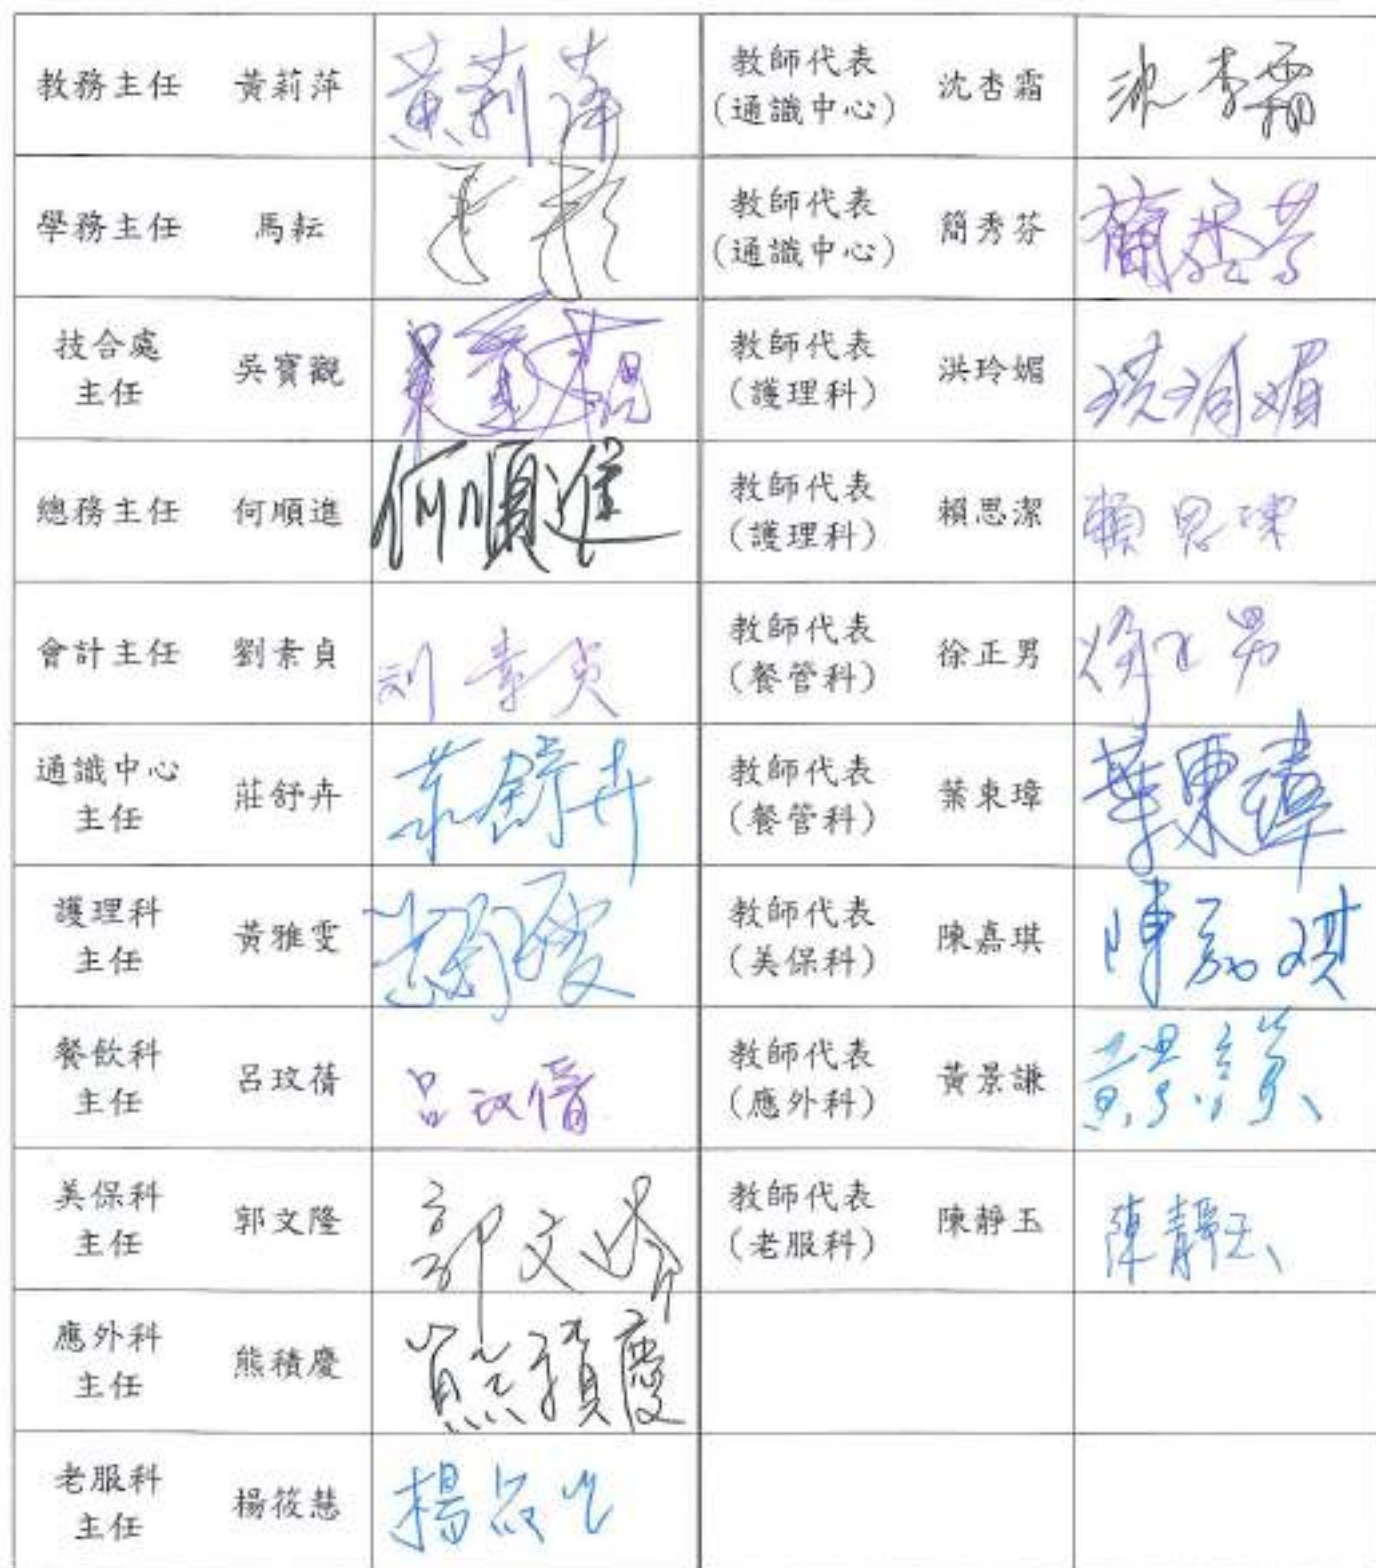 教務主任 黃莉萍 黃莉萍 教師代表 (通識中心) 沈杏霜 沈杏霜
學務主任 馬耘 馬耘 教師代表 (通識中心) 簡秀芬 簡秀芬
技合處 主任 吳寶觀 吳寶觀 教師代表 (護理科) 洪玲媚 洪玲媚
總務主任 何順進 何順進 教師代表 (護理科) 賴思潔 賴思潔
會計主任 劉素貞 刘素貞 教師代表 (餐管科) 徐正男 徐正男
通識中心 主任 莊舒卉 莊舒卉 教師代表 (餐管科) 葉東璋 葉東璋
護理科 主任 黃雅雯 黃雅雯 教師代表 (美保科) 陳嘉琪 陳嘉琪
餐飲科 主任 呂玟蒨 呂玟蒨 教師代表 (應外科) 黃景謙 黃景謙
美保科 主任 郭文隆 郭文隆 教師代表 (老服科) 陳靜玉 陳靜玉
應外科 主任 熊積慶 熊積慶
老服科 主任 楊筱慧 楊筱慧